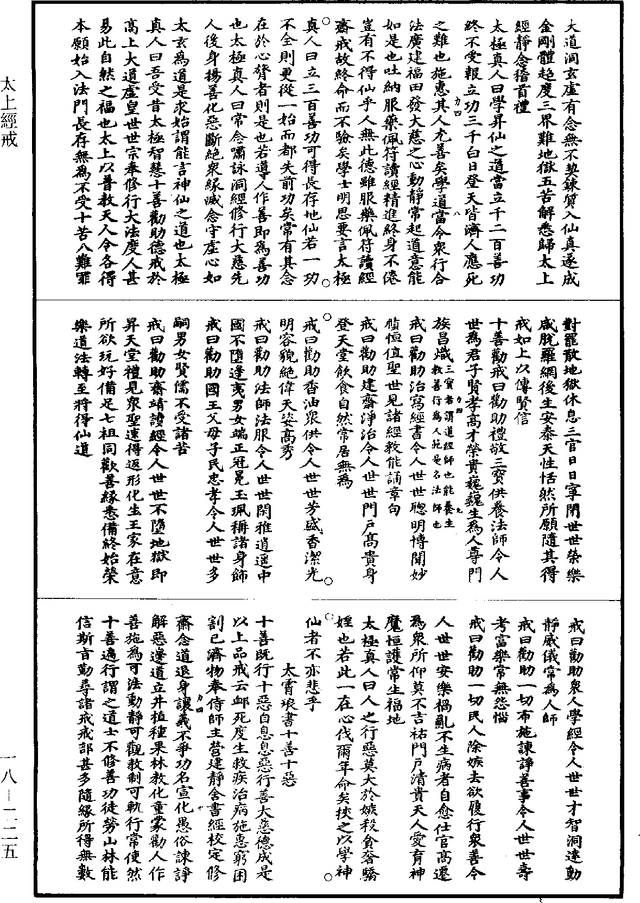 太上經戒
一八－二二五
大道洞玄虛有念無不契鍊質入仙真遂成
金剛體超度三界難地獄五苦解悉歸太上
經靜念稽首禮
太極真人曰學昇仙之道當立千二百善功
終不受報立功三千白日登天皆濟人應死
之難也施惠其人尤善矣學道當令衆行合
法廣建福田發大慈之心動靜常起道意能
如是也吐納服藥佩符讀經精進終身不倦
豈有不得仙乎人無此德雖服藥佩符讀經
齋戒故終命而不驗矣學士明思要言太極
真人曰立三百善功可得長存地仙若一功
不全則更從一始而都失前功矣常有其念
在於心膂者則是也若導人作善即為善功
也太極真人曰常念嘯詠洞經修行大慈先
人後身揚善化惡斷絶衆緣滅念守虛心如
太玄為道是求始謂能言神仙之道也太極
真人曰吾受昔太極智慧十善勸助德戒於
高上大道虛皇世世宗奉修行大法度人甚
易此自然之福也太上以普教天人令各得
本願始入法門長存無為不受十苦八難罪
對罷散地獄休息三官日日寧閑世世榮樂
咸脫羅網後生安泰天性恬然所願隨其得
戒如上以傳賢信
十善勸戒曰勸助禮敬三寶供養法師令人
世為君子賢孝高才榮貴巍巍生為人尊門
族昌熾三寶者謂道經師也能養生教善行為人範是名法師也
戒曰勸助治寫經書令人世世聰明博聞妙
賾恒值聖世見諸經教能誦章句
戒曰勸助建齋淨治令人世世門戶高貴身
登天堂飲食自然常居無為
戒曰勸助香油衆供令人世世芳盛香潔光
明容貌絶偉天姿高秀
戒曰勸助法師法服令人世世閑雅逍遥中
國不墮邊夷男女端正冠冕玉珮裲諸身飾
戒曰勸助國王父母子民忠孝令人世世多
嗣男女賢儒不受諸苦
戒曰勸助齋靖讀經令人世世不墮地獄即
昇天堂禮見衆聖速得返形化生王家在意
所欲玩好備足七祖同歡善緣悉備終始榮
樂道法轉至將得仙道
戒曰勸助衆人學經令人世世才智洞達動
靜威儀常為人師
戒曰勸助一切布施諫諍善事令人世世壽
考富樂常無怨惱
戒曰勸助一切民人除嫉去欲履行衆善令
人世世安樂禍亂不生病者自愈仕官高遷
為衆所仰莫不吉祐門戶清貴天人愛育神
魔恒護常生福地
太極真人曰人之行惡莫大於嫉殺貪奢驕
婬也若此一在心伐爾年命矣挾之以學神
仙者不亦悲乎
太霄琅書十善十惡
十善既行十惡自息息惡行善大慈德成是
以上品戒云䘏死度生救疾治病施惠窮困
割己濟物奉侍師主營建靜舍書經校定修
齋念道退身讓義不爭功名宣化愚俗諫諍
解惡邊道立井植種果林教化童蒙勸人作
善施為可法動靜可觀教制可軌行常使然
十善遍行謂之道士不修善功徒勞山林能
信斯言勤尋諸戒戒部甚多隨緣所得無數